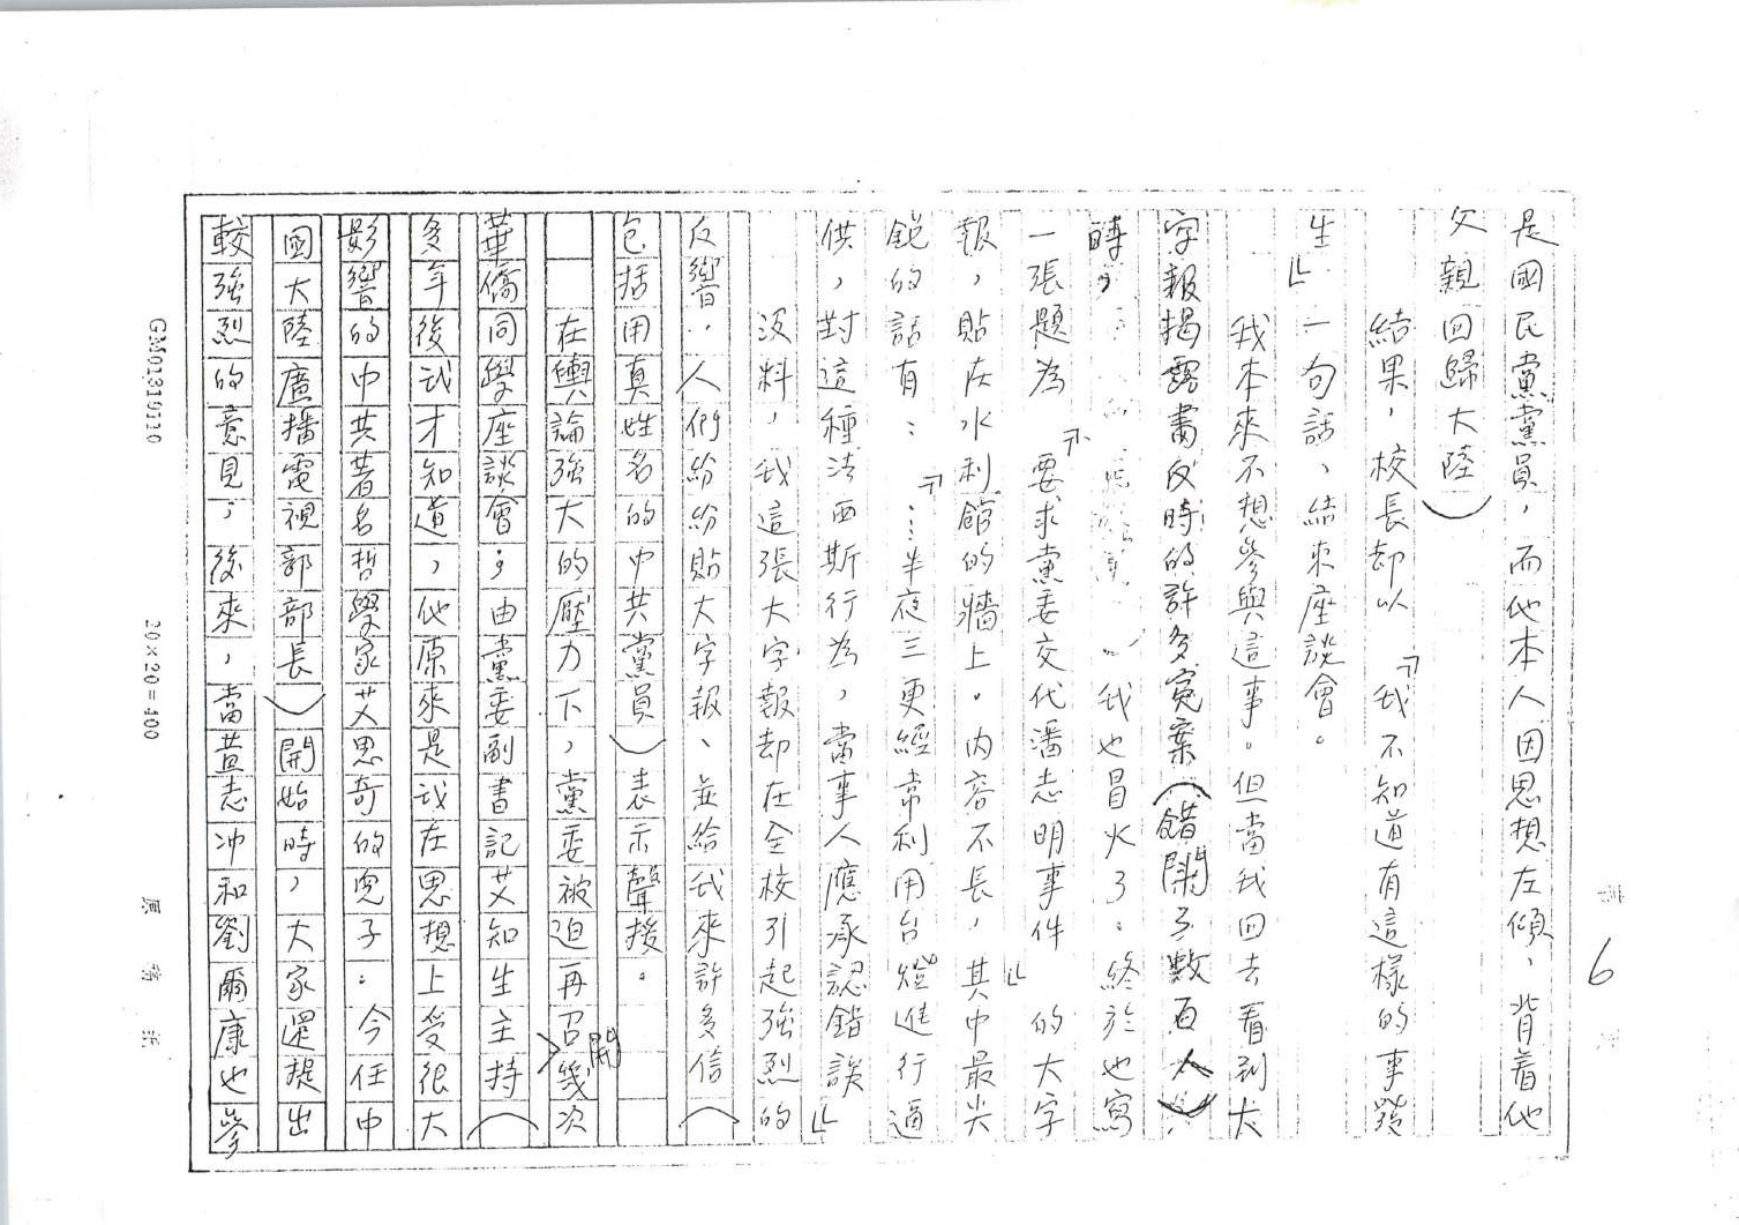 是國民黨黨員，而他本人因思想左傾、背着他
父親回歸大陸）
結果，校長却以「我不知道有這樣的事發
生」一句話、結束座談會。
我本來不想參與這事。但當我回去看到大
字報揭露肅反時的許多冤案（錯關了數百人）
時，我也冒火了：終於也寫
一張題為「要求黨委交代潘志明事件」的大字
報，貼在水利館的牆上。内容不長，其中最尖
銳的話有：「……半夜三更經常利用台燈進行逼
供，對這種法西斯行為，當事人應承認錯誤」
没料，我這張大字報却在全校引起強烈的
反響：人們紛紛貼大字報、並給我來許多信（
包括用真姓名的中共黨員）表示聲援。
在輿論強大的壓力下，黨委被迫再召開幾次
華僑同學座談會；由黨委副書記艾知生主持（
多年後我才知道，他原來是我在思想上受很大
影響的中共著名哲學家艾思奇的兒子：今任中
國大陸廣播電視部部長）開始時，大家還提出
較強烈的意見；後來，當黃志冲和劉爾康也參
6
GM01319310
20×20=400
原稿紙